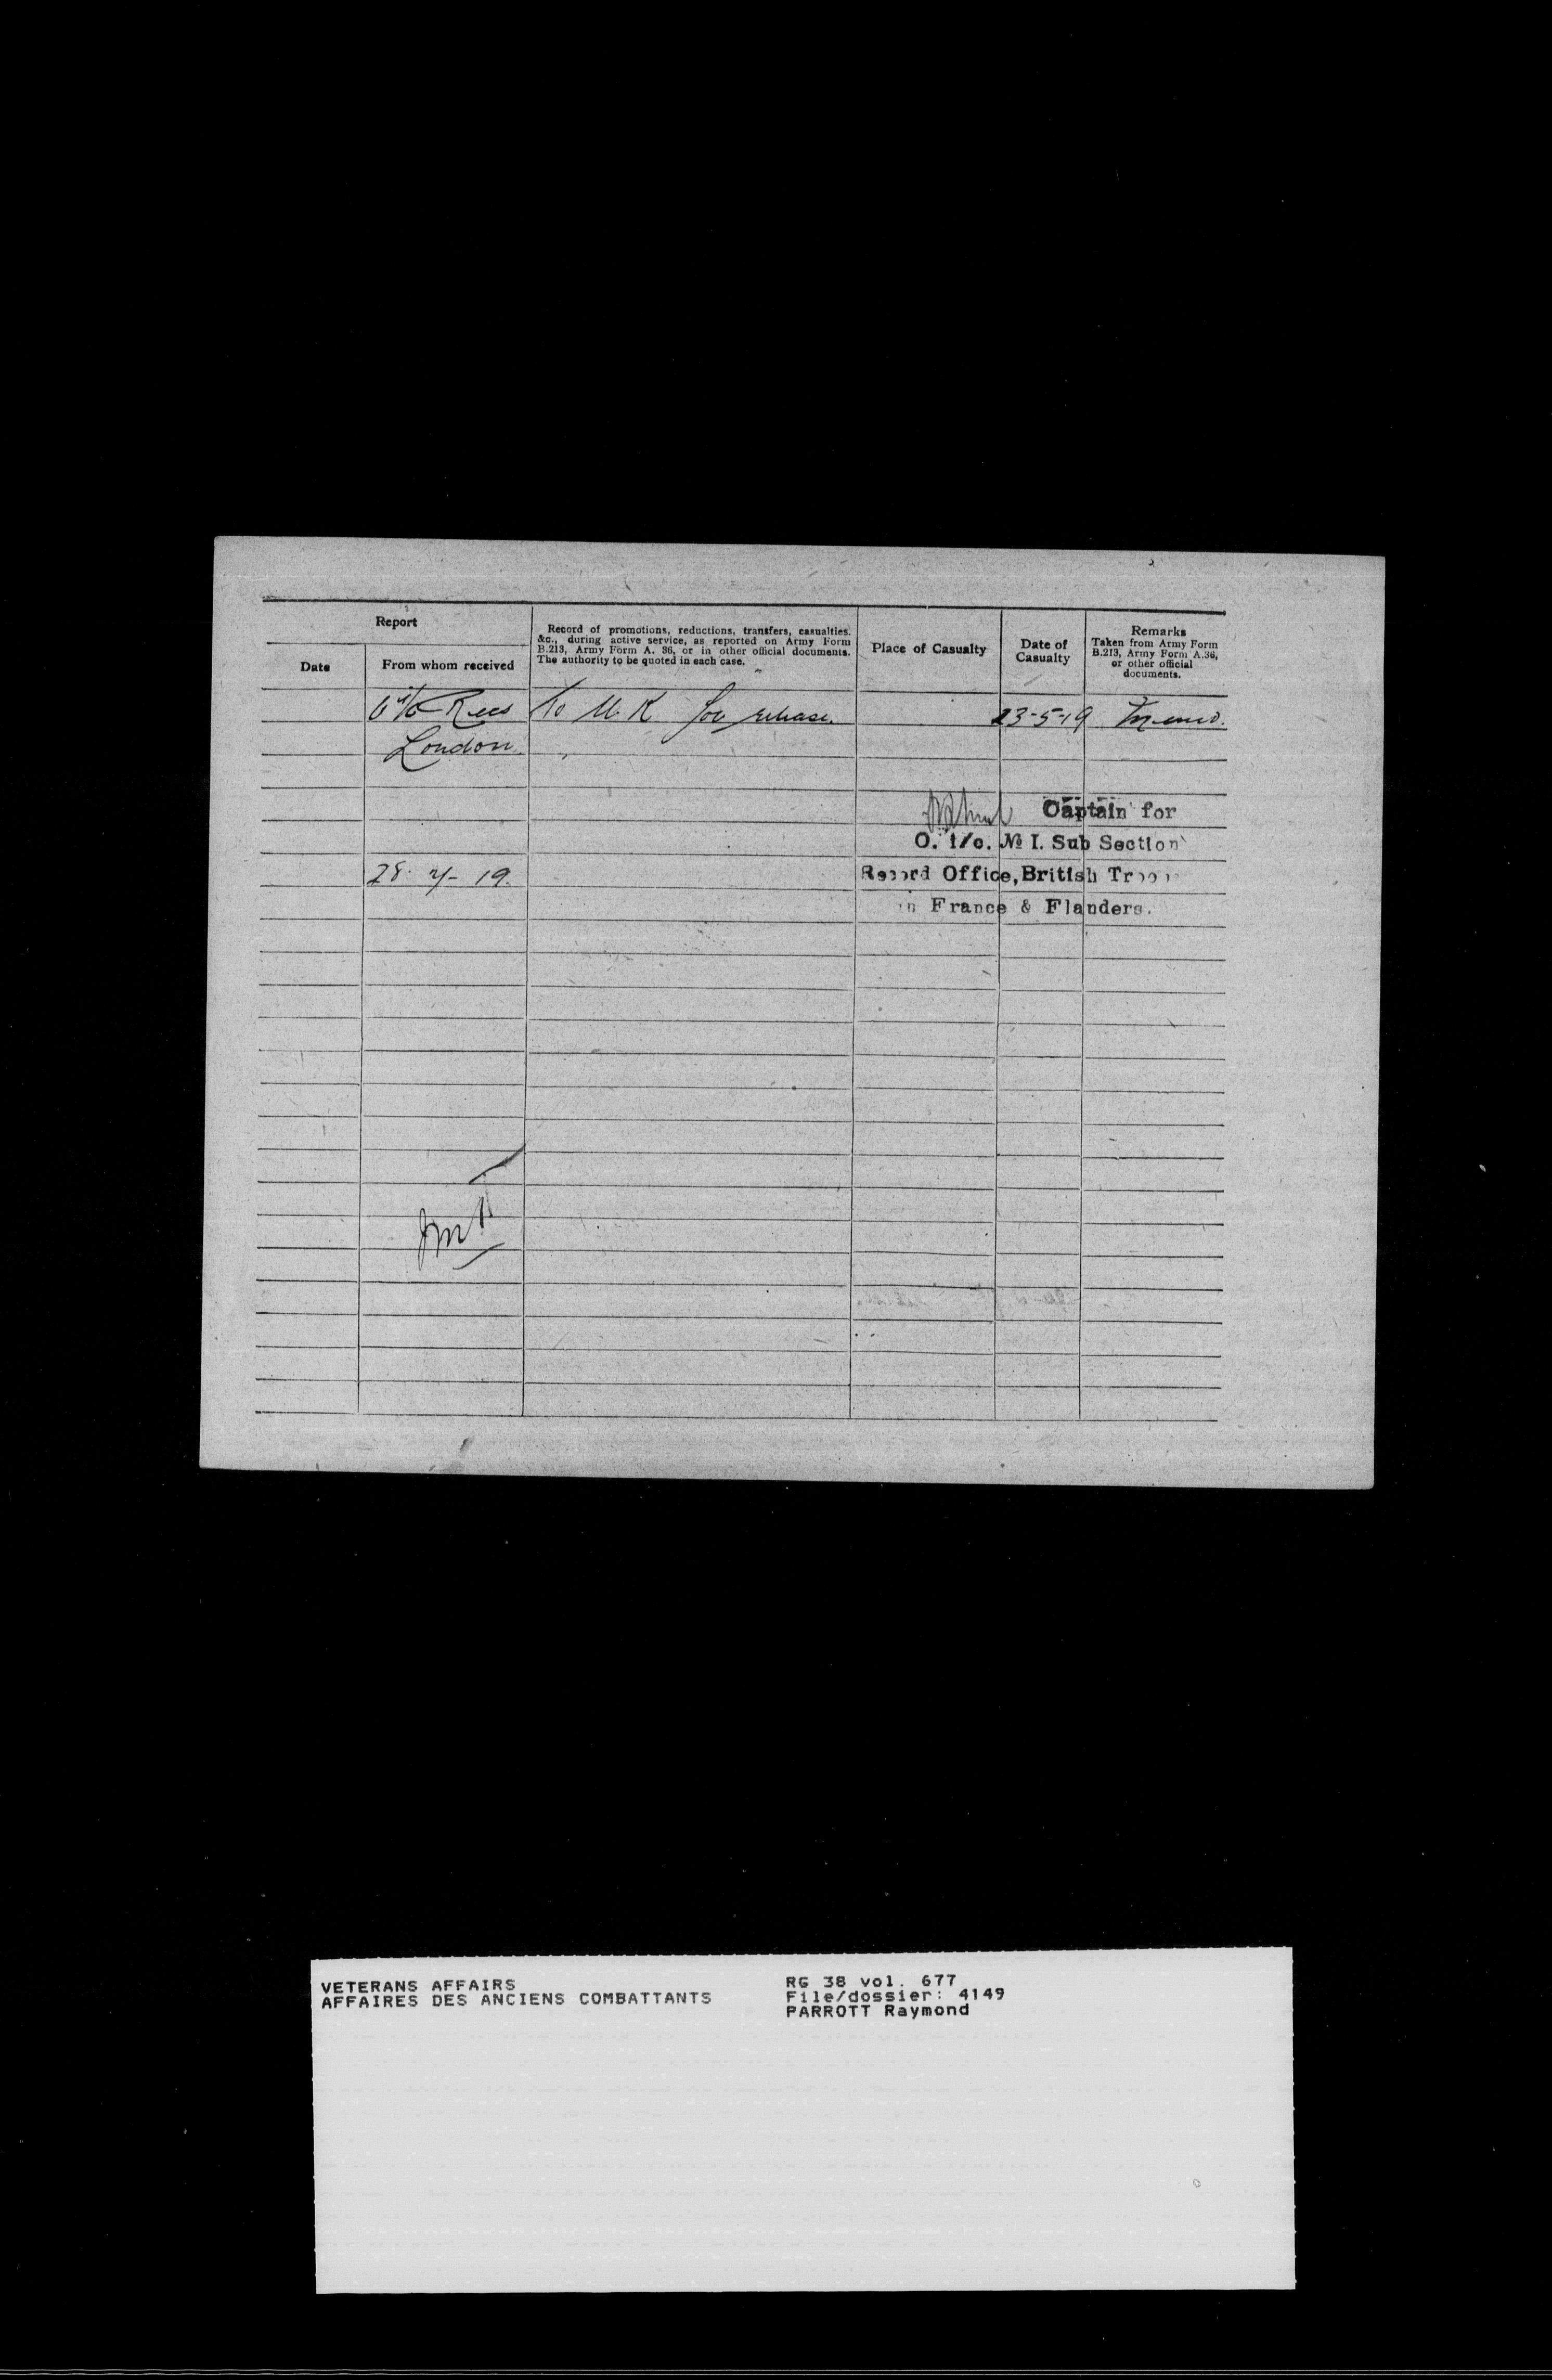 Report
Date
From whom received
Record of promotions, reductions, transfers, casualties,
&c., during active service, as reported on Army Form
B.213, Army Form A. 36, or in other official documents.
The authority to be quoted in each case.
Place of Casualty
Date of
Casualty
Remarks
Taken from Army Form
B.213, Army Form A.36,
or other official
documents.
Recs To U.K. for release. 23-5-19
London
Captain for
O. i/c. № I. Sub Section
28. 19.
Record Office, British
in France & Flanders.
VETERANS AFFAIRS
AFFAIRES DES ANCIENS COMBATTANTS
RG 38 vol. 677
File/dossier: 4149
PARROTT Raymond